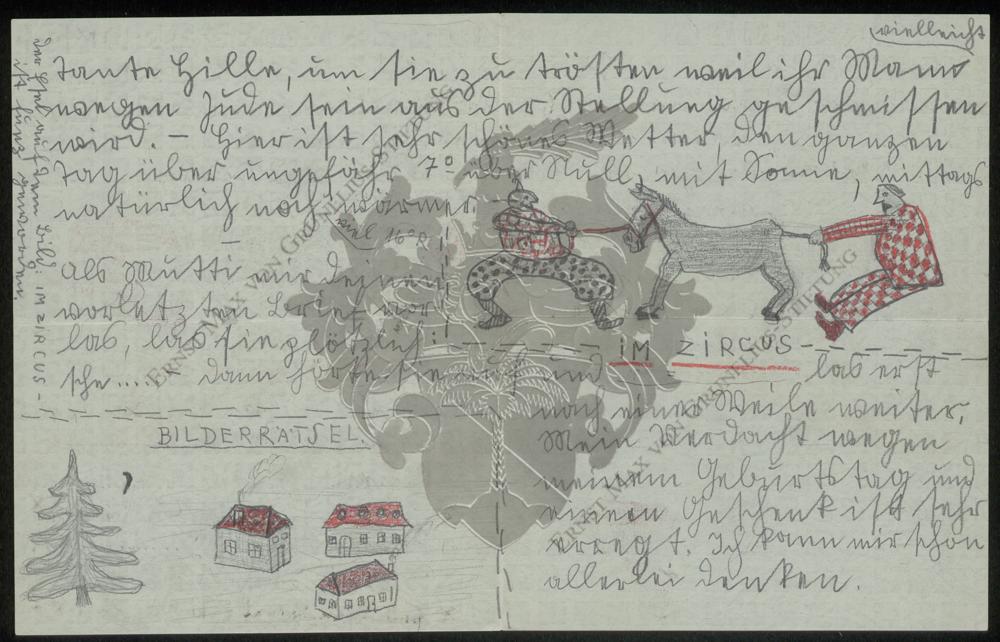 vielleicht
Tante Hille, um sie zu trösten weil ihr Mann
wegen Jude sein aus der Stellung geschmissen
wird. – Hier ist sehr schönes Wetter, den ganzen
Tag über ungefähr 7° über Null, mit Sonne, mittags
natürlich noch wärmer.
–
Als Mutti mir deinen
vorletzten Brief vor-
las, las sie plötzlich:
sche..... dann hörte sie auf und
IM ZIRCUS
las erst
nach einer Weile weiter,
Mein Verdacht wegen
meinem Geburtstag und
einem Geschenk ist sehr
erregt. Ich kann mir schon
allerlei denken.
BILDERRÄTSEL.
,
Der Esel auf dem Bild IM ZIRCUS
ist geworden
ERNST MAX VON GRUNELIUS-STIFTUNG
ERNST MAX VON GRUNELIUS-STIFTUNG